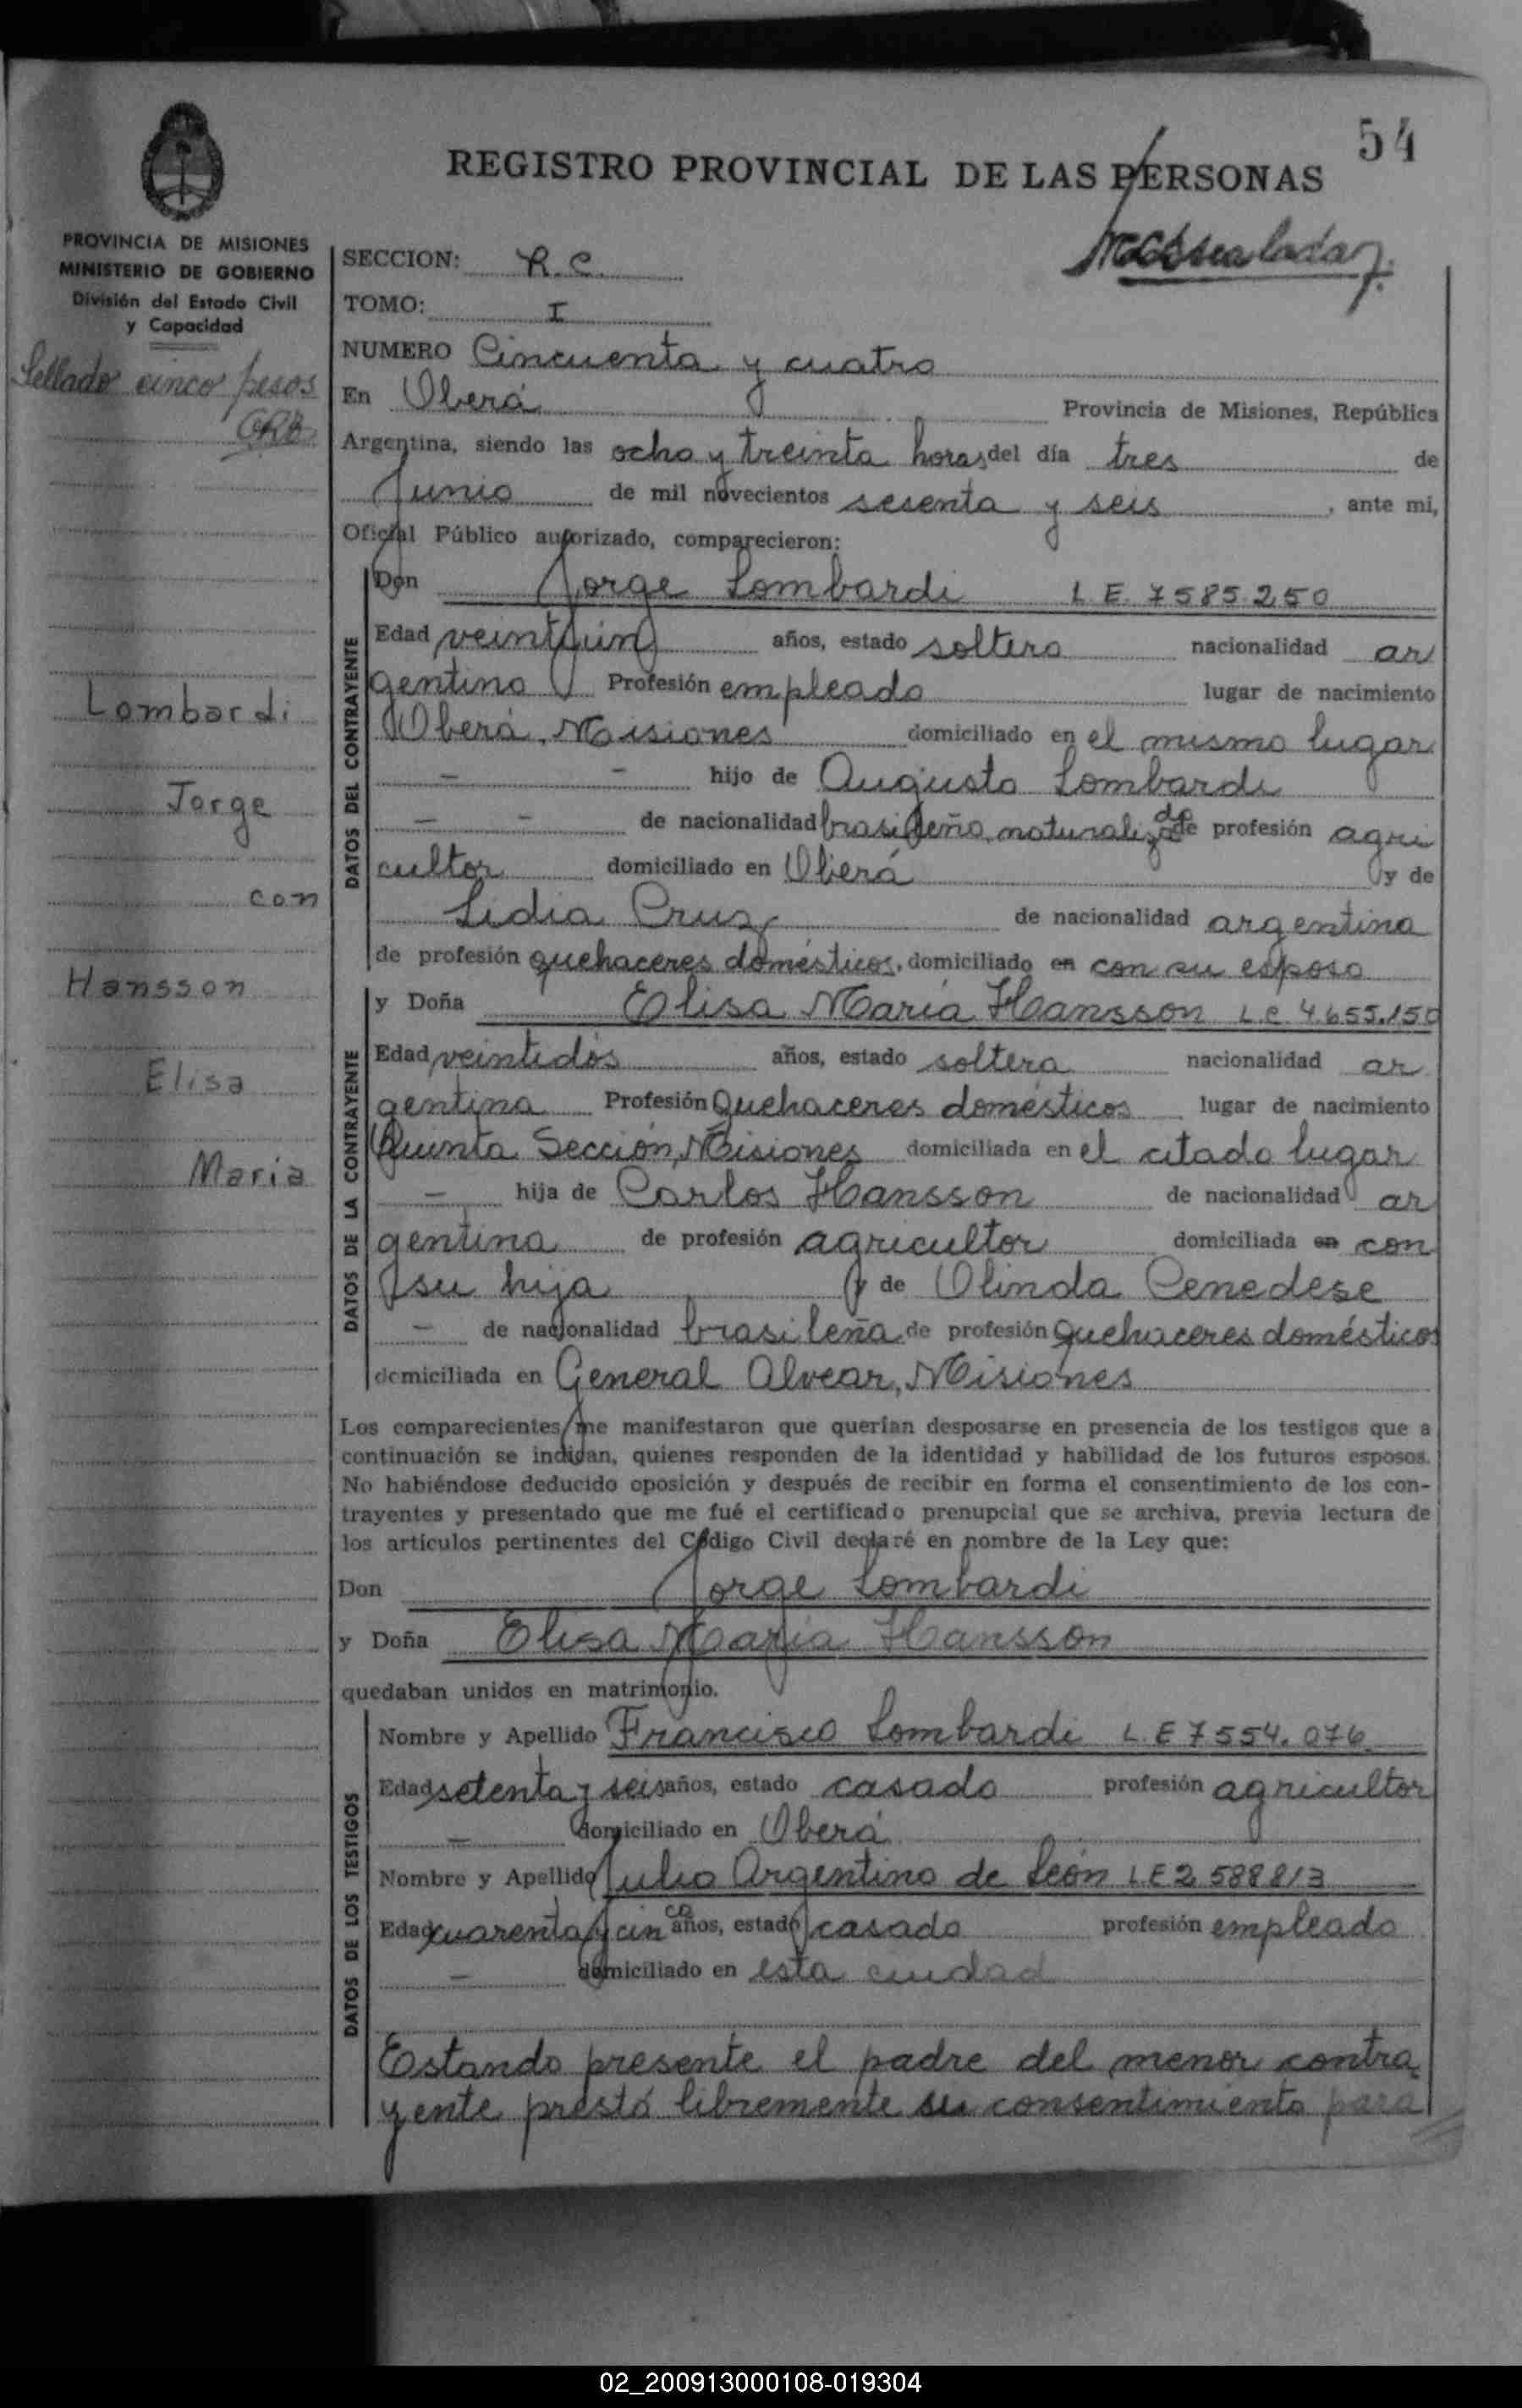 54
REGISTRO PROVINCIAL DE LAS PERSONAS
PROVINCIA DE MISIONES
MINISTERIO DE GOBIERNO
División del Estado Civil
y Capacidad
Sellado cinco pesos
Lombardi
Jorge
con
Hansson
Elisa
Maria
SECCION: R. C.
TOMO: I
NUMERO Cincuenta y cuatro
En Oberá Provincia de Misiones, República
Argentina, siendo las ocho y treinta horas del día tres de
Junio de mil novecientos sesenta y seis, ante mi,
Oficial Público autorizado, comparecieron:
Don Jorge Lombardi L E. 7585.250
DATOS DEL CONTRAYENTE
Edad veintiún años, estado soltero nacionalidad ar
gentino Profesión empleado lugar de nacimiento
Oberá, Misiones domiciliado en el mismo lugar
- - hijo de Augusto Lombardi
- - de nacionalidad brasileño naturalizado de profesión agri
cultor domiciliado en Oberá y de
Lidia Cruz de nacionalidad argentina
de profesión quehaceres domésticos, domiciliado en con su esposo
y Doña Elisa María Hansson L.C 4.655.150
DATOS DE LA CONTRAYENTE
Edad veintidós años, estado soltera nacionalidad ar
gentina Profesión Quehaceres domésticos lugar de nacimiento
Quinta Sección, Misiones domiciliada en el citado lugar
- hija de Carlos Hansson de nacionalidad ar
gentina de profesión agricultor domiciliada en con
su hija y de Olinda Cenedese
- de nacionalidad brasileña de profesión quehaceres domésticos
domiciliada en General Alvear, Misiones
Los comparecientes me manifestaron que querían desposarse en presencia de los testigos que a
continuación se indican, quienes responden de la identidad y habilidad de los futuros esposos.
No habiéndose deducido oposición y después de recibir en forma el consentimiento de los con-
trayentes y presentado que me fué el certificado prenupcial que se archiva, previa lectura de
los artículos pertinentes del Código Civil declaré en nombre de la Ley que:
Don Jorge Lombardi
y Doña Elisa María Hansson
quedaban unidos en matrimonio.
DATOS DE LOS TESTIGOS
Nombre y Apellido Francisco Lombardi L. E 7554.076
Edad setenta y seis años, estado casado profesión agricultor
- domiciliado en Oberá
Nombre y Apellido Julio Argentino de León L E 2 588813
Edad cuarenta y cinco años, estado casado profesión empleado
- domiciliado en esta ciudad
Estando presente el padre del menor contra
yente prestó libremente su consentimiento para
02_200913000108-019304